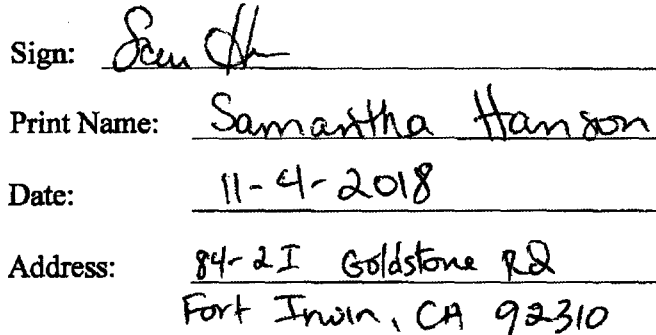 Sign: Sam H
Print Name: Samantha Hanson
Date: 11-4-2018
Address: 84-2I Goldstone Rd
Fort Irwin, CA 92310